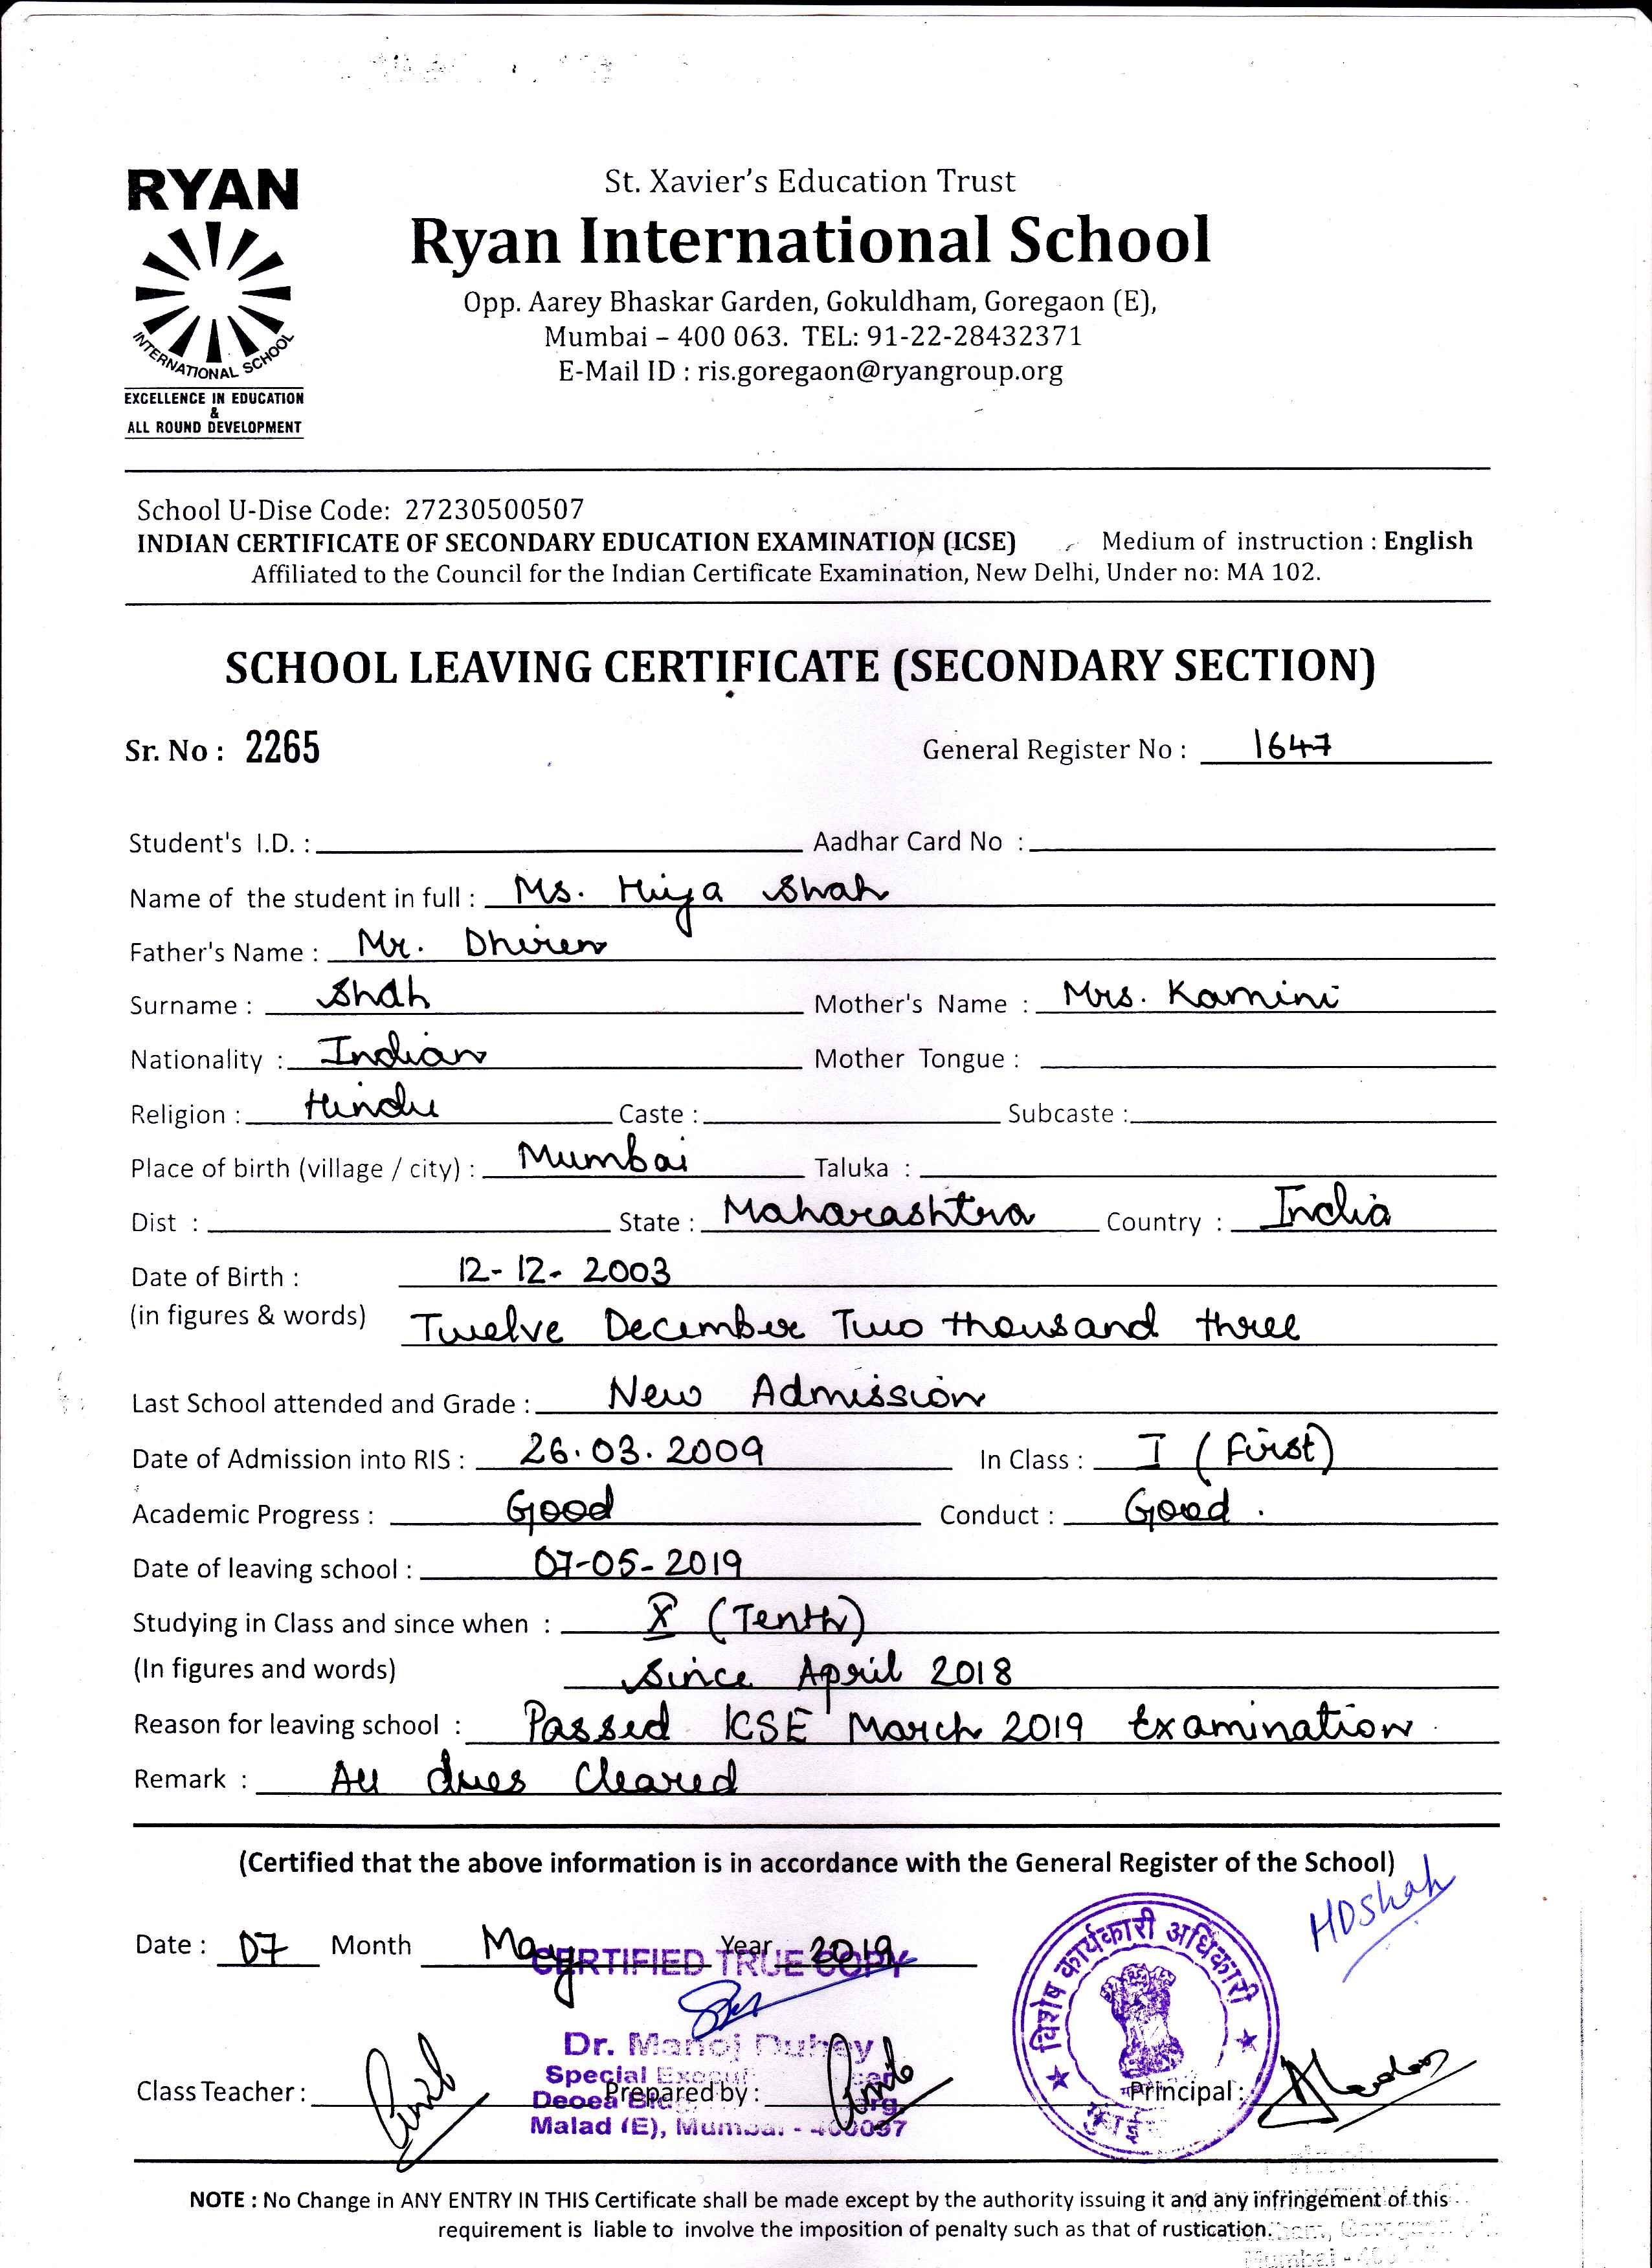 RYAN
INTERNATIONAL SCHOOL
EXCELLENCE IN EDUCATION
&
ALL ROUND DEVELOPMENT
St. Xavier's Education Trust
Ryan International School
Opp. Aarey Bhaskar Garden, Gokuldham, Goregaon (E),
Mumbai – 400 063. TEL: 91-22-28432371
E-Mail ID : ris.goregaon@ryangroup.org
School U-Dise Code: 27230500507
INDIAN CERTIFICATE OF SECONDARY EDUCATION EXAMINATION (ICSE) Medium of instruction : English
Affiliated to the Council for the Indian Certificate Examination, New Delhi, Under no: MA 102.
SCHOOL LEAVING CERTIFICATE (SECONDARY SECTION)
Sr. No : 2265 General Register No : 1647
Student's I.D. : Aadhar Card No :
Name of the student in full : Ms. Hiya Shah
Father's Name : Mr. Dhiren
Surname : Shah Mother's Name : Mrs. Kamini
Nationality : Indian Mother Tongue :
Religion : Hindu Caste : Subcaste :
Place of birth (village / city) : Mumbai Taluka :
Dist : State : Maharashtra Country : India
Date of Birth : 12-12-2003
(in figures & words) Twelve December Two thousand three
Last School attended and Grade : New Admission
Date of Admission into RIS : 26.03.2009 In Class : I (First)
Academic Progress : Good Conduct : Good.
Date of leaving school : 07-05-2019
Studying in Class and since when : X (Tenth)
(In figures and words) Since April 2018
Reason for leaving school : Passed ICSE March 2019 Examination.
Remark : All dues Cleared
(Certified that the above information is in accordance with the General Register of the School)
HDShah
Date : 07 Month May Year 2019
CERTIFIED TRUE COPY
विशेष कार्यकारी अधिकारी
Dr. Manoj Dubey
Special
Class Teacher : Prepared by : Principal :
Malad (E), Mumbai - 400097
NOTE : No Change in ANY ENTRY IN THIS Certificate shall be made except by the authority issuing it and any infringement of this
requirement is liable to involve the imposition of penalty such as that of rustication.